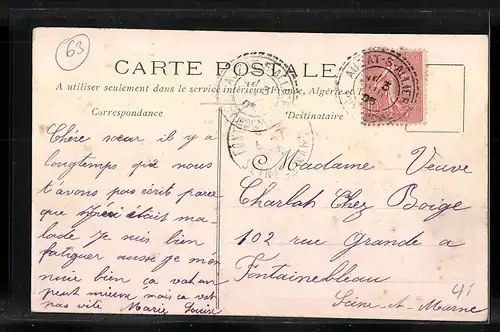 63
CARTE POSTALE
A utiliser seulement dans le service intérieur France, Algérie et
Correspondance
Destinataire
AUZAT-S-ALLIER
Chère sœur il y a
longtemps que nous
t'avons pas écrit parce
que était ma-
lade Je suis bien
fatiguer aussi je me
bien ça vat un
peut mieux mais ça vat
pas vite Marie Louise
Madame Veuve
Charlot Chez Boige
102 rue Grande a
Fontainebleau
Seine-et-Marne